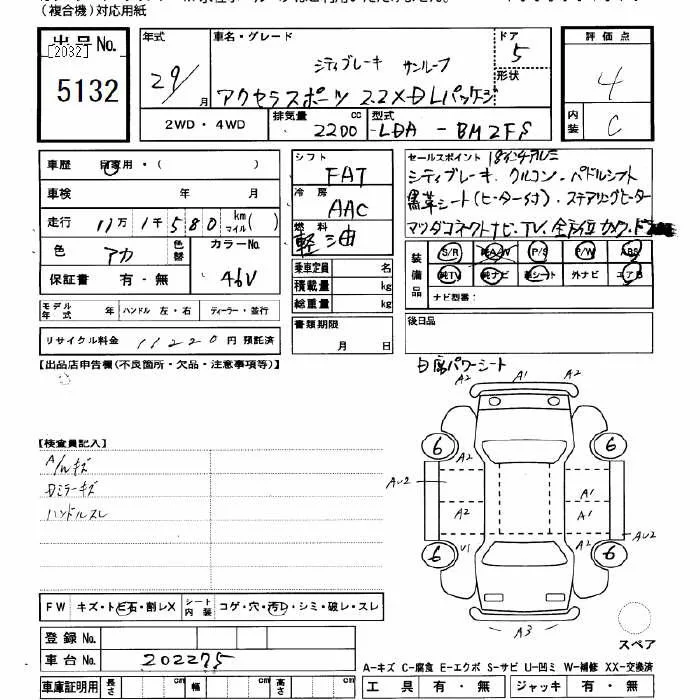 （複合機）対応用紙
出品No.
[2032]
5132
年式
29
月
車名・グレード
シティブレーキ サンルーフ
アクセラスポーツ 2.2XD Lパッケージ
ドア
5
形状
2WD・4WD
排気量
2200
cc
型式
LDA - BM2FS
評価点
4
内装
C
車歴
自家用・（ ）
車検 年 月
走行 11万 1千 580 km マイル ( )
色 アカ
色替
カラーNo.
46V
保証書 有・無
モデル年式 年
ハンドル 左・右
ディーラー・並行
リサイクル料金 11220 円 預託済
シフト
FAT
冷房
AAC
燃料
軽油
乗車定員 名
積載量 kg
総重量 kg
書類期限
月 日
セールスポイント 18インチアルミ
シティブレーキ. クルコン. パドルシフト
黒革シート(ヒーター付). ステアリングヒーター
マツダコネクトナビ. TV. 全方位カメラ.
装備品
S/R 純A/W P/S P/W ABS
純TV 純ナビ 革シート 外ナビ エアB
ナビ型番：
後日品
【出品店申告欄（不良箇所・欠品・注意事項等）】
白席パワーシート
【検査員記入】
A/Wキズ
Dミラーキズ
ハンドルスレ
A2 A1 A2
6 6
A2
AU2
A1
A2 A1
AU2
U1 A2
6 6
A3
スペア
FW キズ・トビ石・割レX
シート内装 コゲ・穴・汚レ・シミ・破レ・スレ
登録No.
車台No. 202275
車庫証明用 長さ cm 幅 cm 高さ cm
A-キズ C-腐食 E-エクボ S-サビ U-凹ミ W-補修 XX-交換済
工具 有・無 ジャッキ 有・無